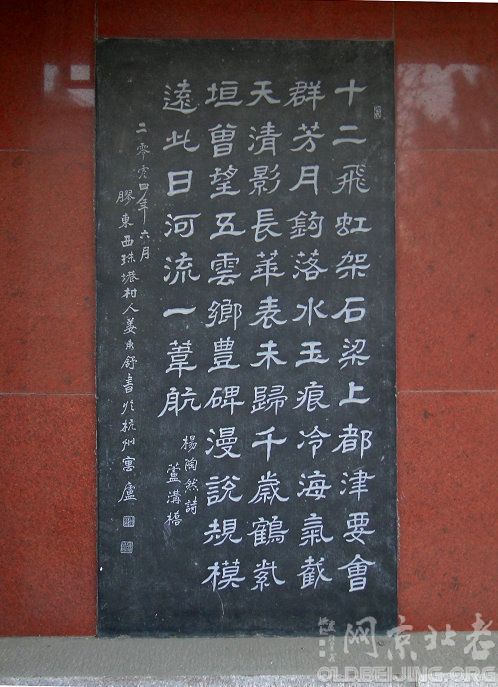 十二飛虹架石梁上都津要會
群芳月鈎落水玉痕冷海氣截
天清影長華表未歸千歲鶴紫
垣曾望五雲鄉豊碑漫說規模
遠此日河流一葦航
楊陶然詩
盧溝橋
二零零四年六月
膠東西珠塂村人姜東舒書於杭州寓廬
网京北老
OLDBEIJING.ORG